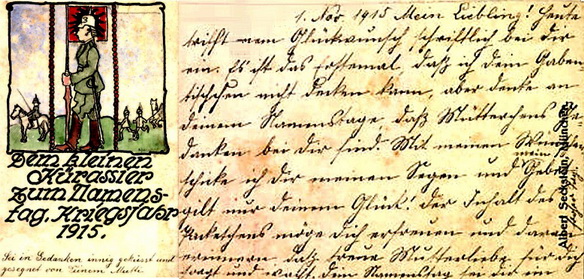 Dem kleinen
Kürassier
zum Namens-
tag. Kriegsjahr
1915.
Sei in Gedanken innig geküsst und
gesegnet von Deiner Mutti
1. Nov. 1915 Mein Liebling! Heute
trifft mein Glückwunsch schriftlich bei dir
ein. Es ist das erstemal, daß ich dem Gaben
tischchen nicht decken kann, aber denke an
deinem Namenstage, daß Mütterchens Ge-
danken bei dir sind. Mit meinen Wünschen
schicke ich dir meinen Segen und mein Gebet
gilt nur deinem Glück! Der Inhalt des
Packetchens möge dich erfreuen und daran
erinnern, daß treue Mutterliebe für dich
sorgt und Namenstag sei dir ein